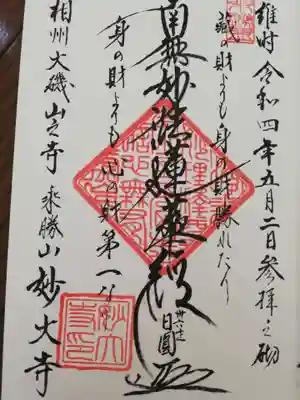 維時 令和四年五月二日参拝之砌
蔵の財よりも身の財勝れたり
南無妙法蓮華経
身の財よりも心の財第一なり
日圓
相州大磯 山之寺 来勝山 妙大寺